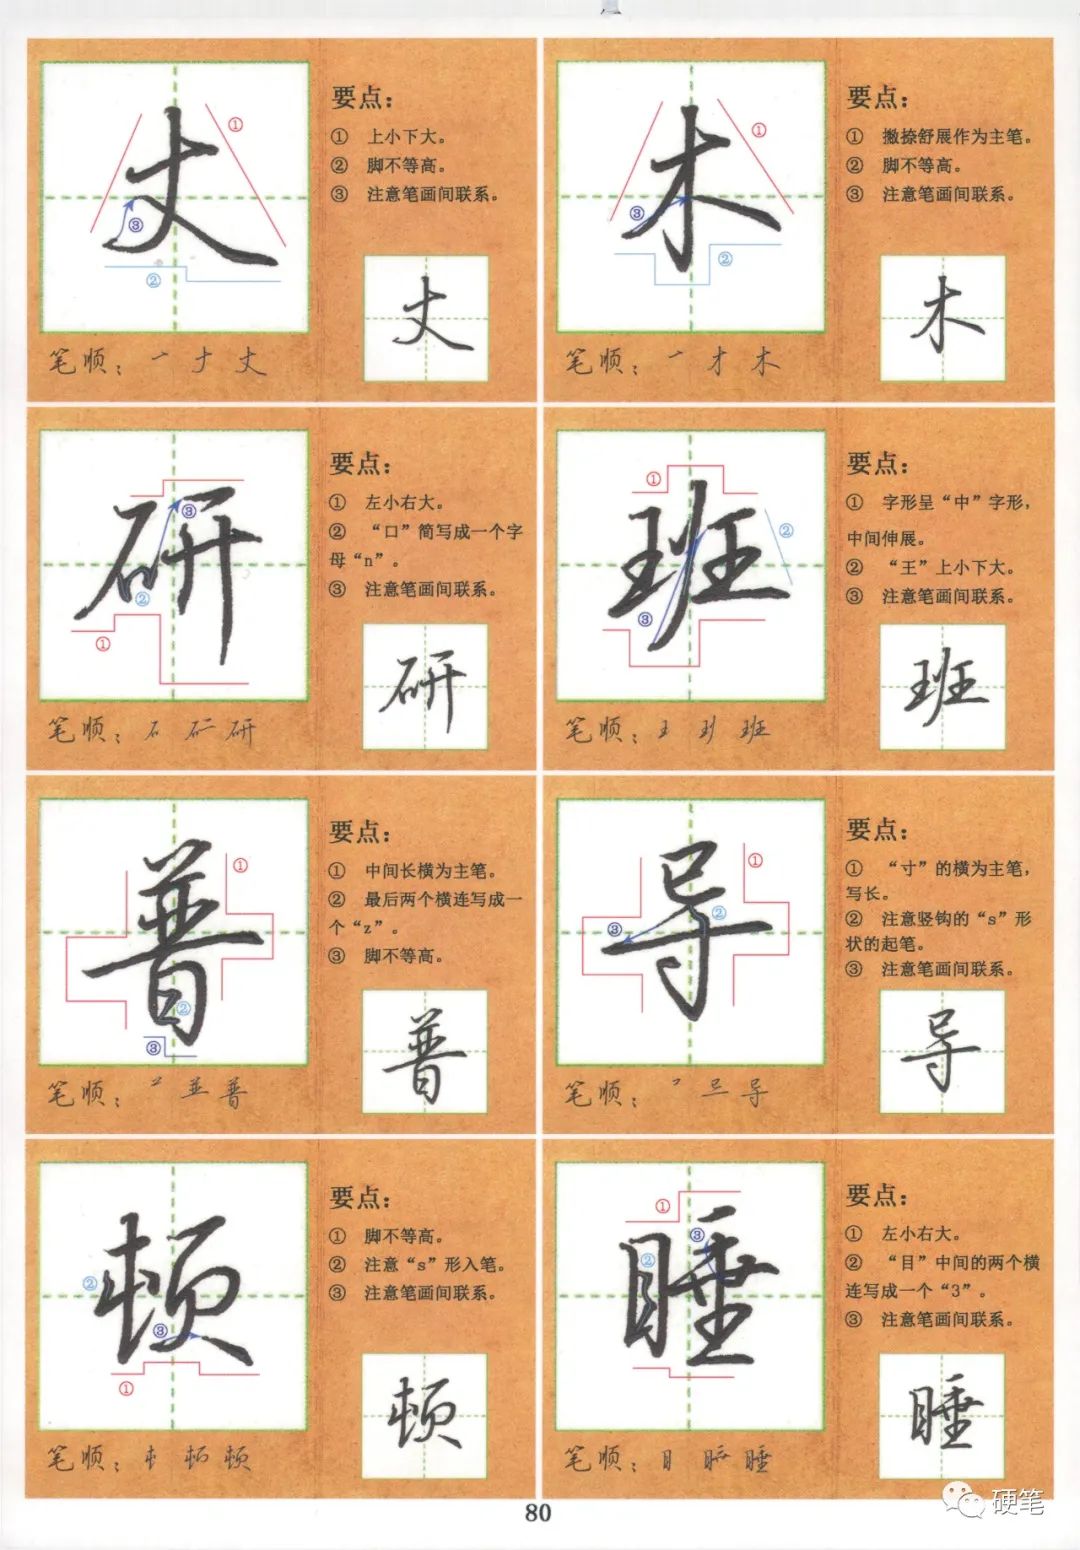 丈
要点：
① 上小下大。
② 脚不等高。
③ 注意笔画间联系。
丈
笔顺：一 ナ 丈
木
要点：
① 撇捺舒展作为主笔。
② 脚不等高。
③ 注意笔画间联系。
木
笔顺：一 才 木
研
要点：
① 左小右大。
② “口”简写成一个字
母“n”。
③ 注意笔画间联系。
研
笔顺：石 研
班
要点：
① 字形呈“中”字形，
中间伸展。
② “王”上小下大。
③ 注意笔画间联系。
班
笔顺：王 班
普
要点：
① 中间长横为主笔。
② 最后两个横连写成一
个“z”。
③ 脚不等高。
普
笔顺：並 普
导
要点：
① “寸”的横为主笔，
写长。
② 注意竖钩的“s”形
状的起笔。
③ 注意笔画间联系。
导
笔顺：导
顿
要点：
① 脚不等高。
② 注意“s”形入笔。
③ 注意笔画间联系。
顿
笔顺：顿
睡
要点：
① 左小右大。
② “目”中间的两个横
连写成一个“3”。
③ 注意笔画间联系。
睡
笔顺：目 睡
80
硬笔